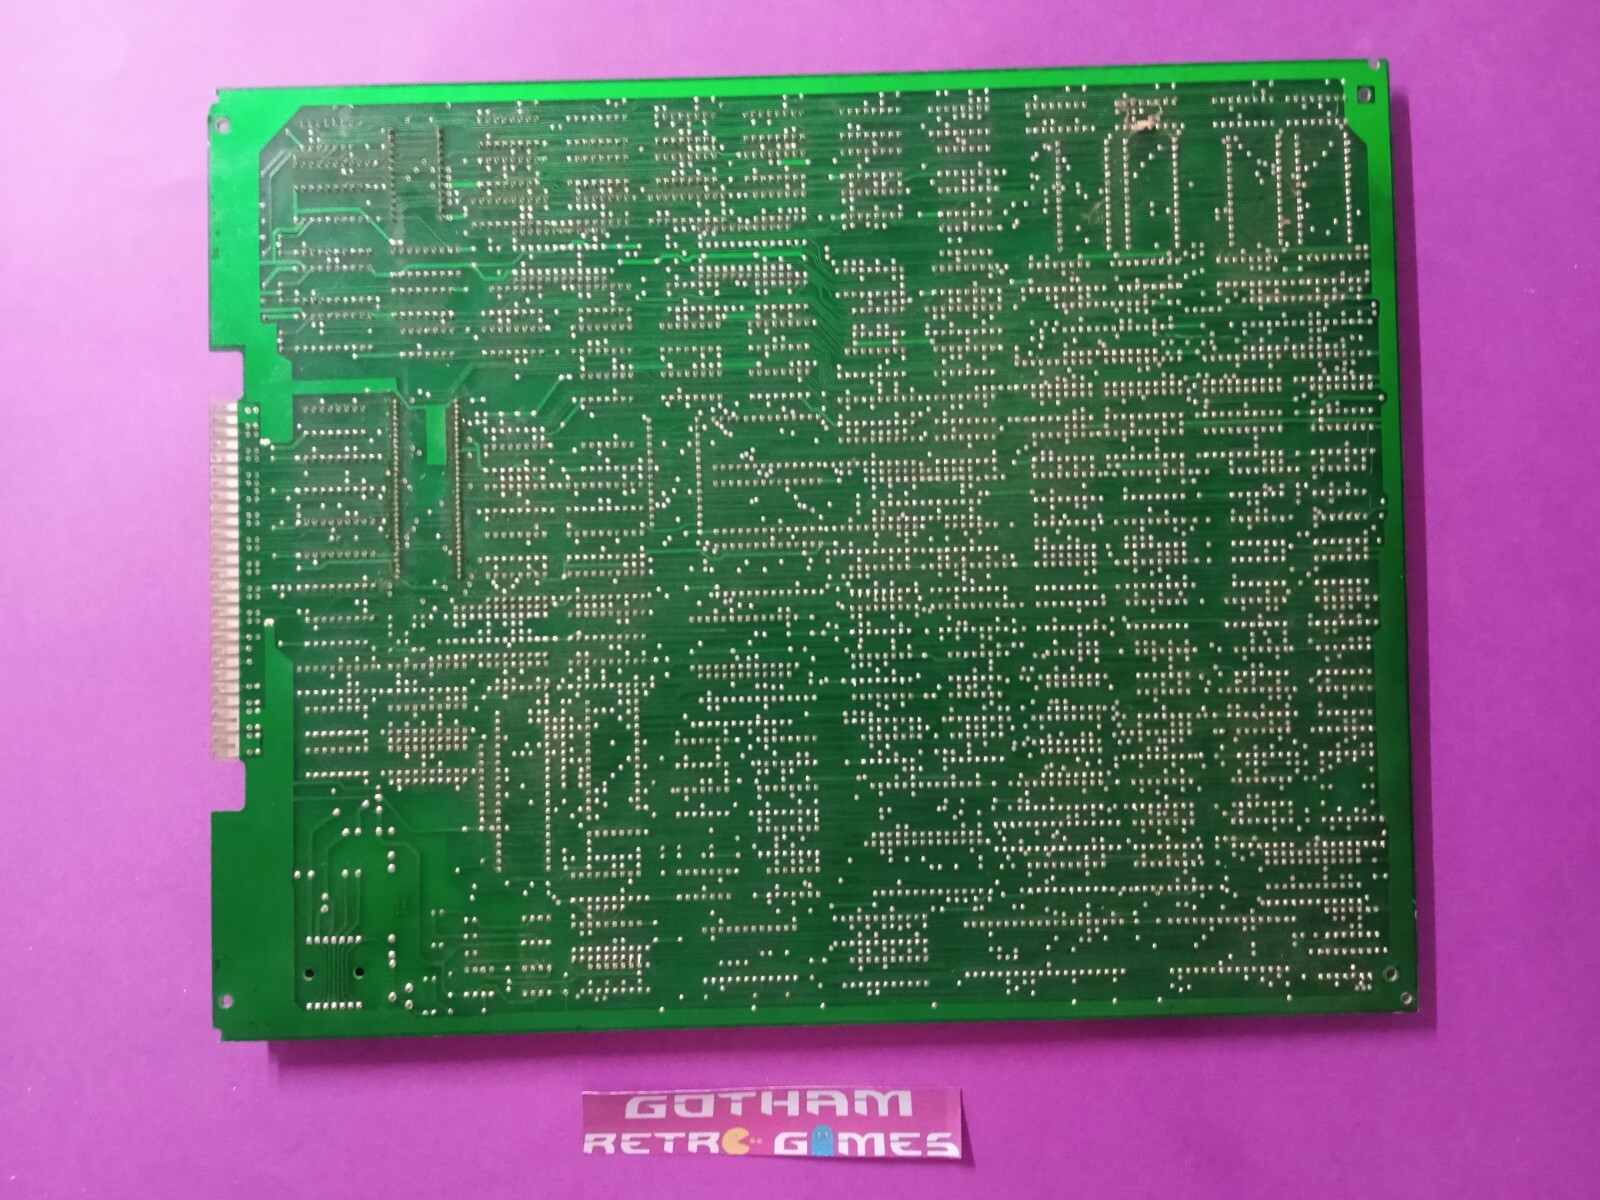 GOTHAM
RETRO GAMES